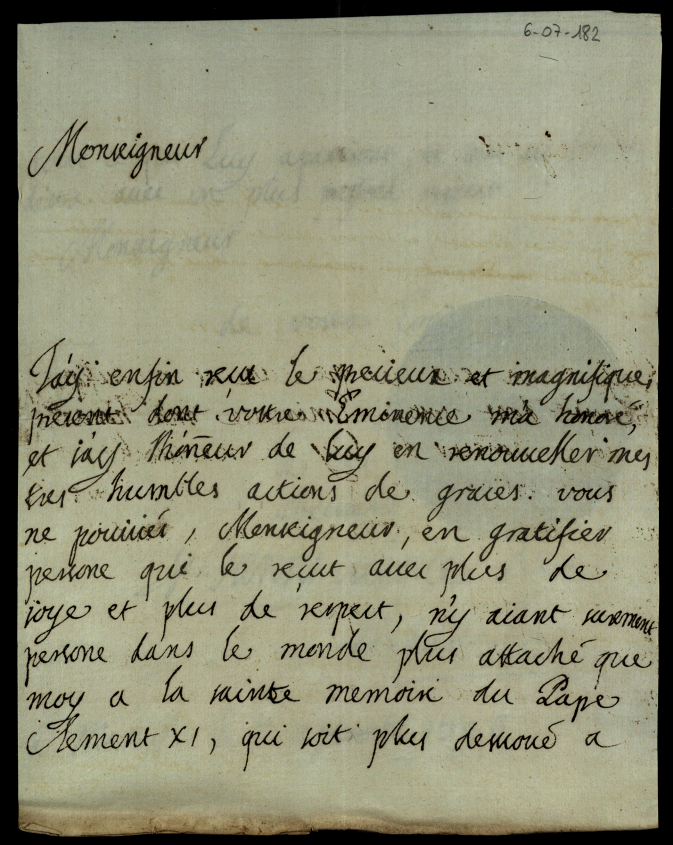 6-07-182
Monseigneur
J'ay enfin reçu le precieux et magnifique
present dont votre Eminence m'a honoré,
et j'ay l'hoñeur de luy en renouveller mes
tres humbles actions de graces. vous
ne pouviés, Monseigneur, en gratifier
persone qui le recut avec plus de
joye et plus de respect, n'y aiant surement
persone dans le monde plus attaché que
moy a la sainte memoire du Pape
Clement XI, qui soit plus devoué a